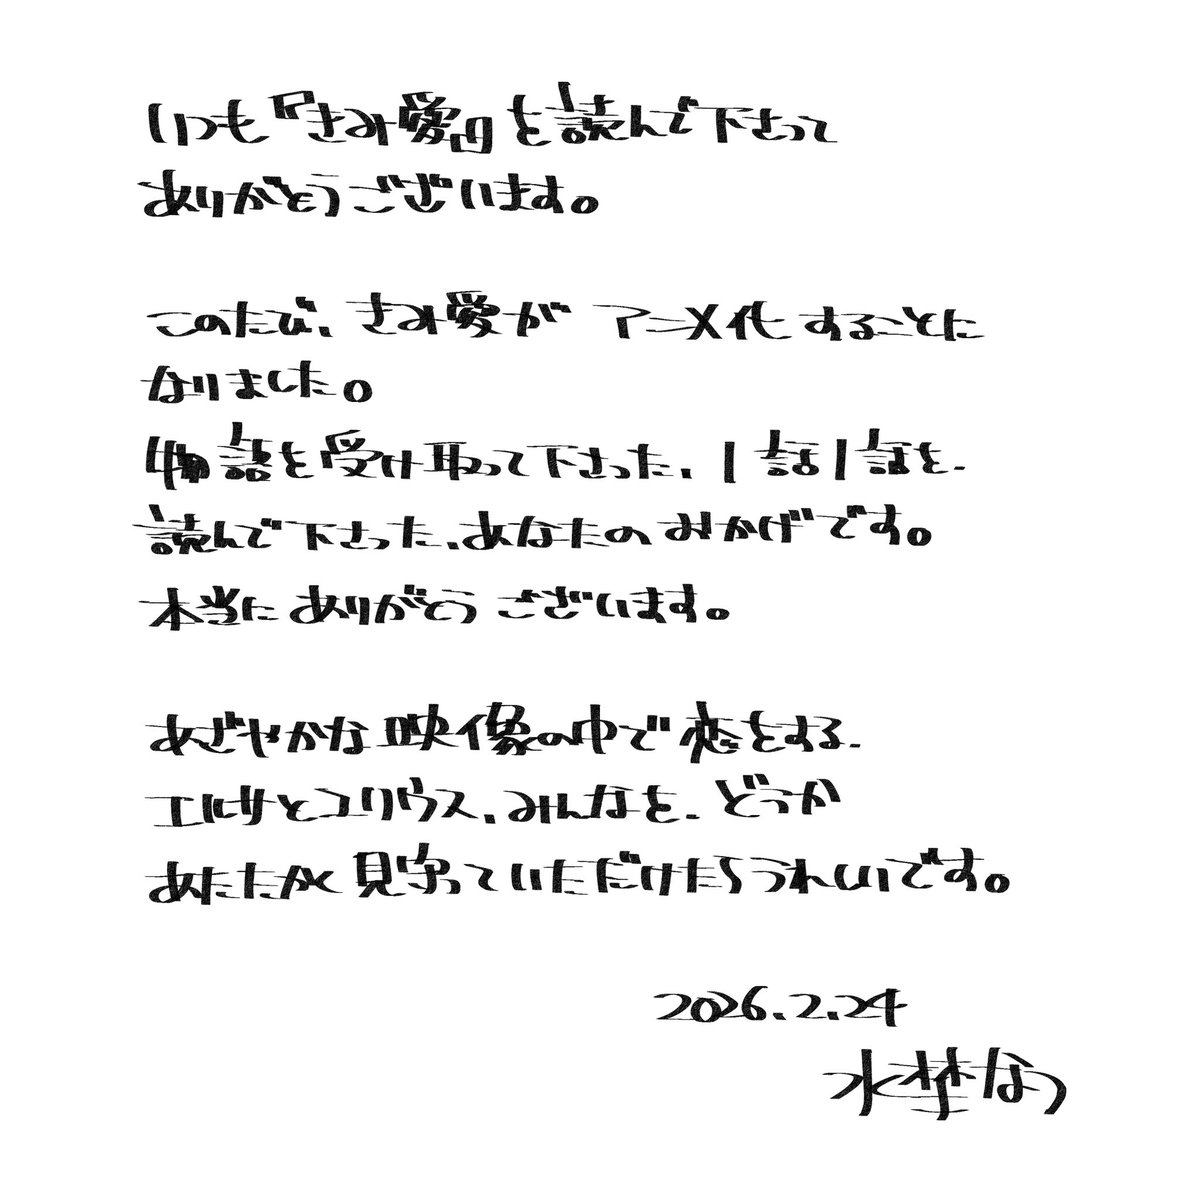 いつも『きみ愛』を読んで下さって
ありがとうございます。
このたび、きみ愛が アニメ化することに
なりました。
物語を受け取って下さった、1話1話を、
読んで下さった、あなたのおかげです。
本当にありがとうございます。
あざやかな映像の中で恋をする、
エルサとユリウス、みんなを、どうか
あたたかく見守っていただけたらうれしいです。
2026.2.24
水埜なつ